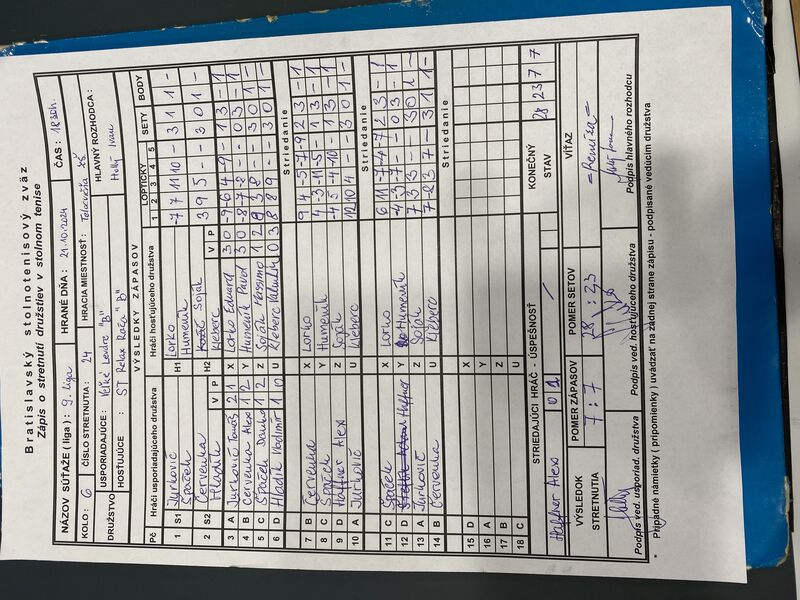 Bratislavský stolnotenisový zväz
Zápis o stretnutí družstiev v stolnom tenise
NÁZOV SÚŤAŽE ( liga ) : 9. liga HRANÉ DŇA : 21.10.2024 ČAS : 18 30h.
KOLO : 6 ČÍSLO STRETNUTIA : 24 HRACIA MIESTNOSŤ :
DRUŽSTVO USPORIADAJÚCE : "D" HLAVNÝ ROZHODCA :
HOSŤUJÚCE : ST Relax Rača "B" Hollý Ivan
VÝSLEDKY ZÁPASOV
Pč Hráči usporiadajúceho družstva Hráči hosťujúceho družstva LOPTIČKY SETY BODY
1 2 3 4 5
1 S1 Jurkovič H1 Lorko -7 11 11 10 - 3 1 1 -
Špaček Humeník
2 S2 Červenka H2 Soják 3 9 5 - - 3 0 1 -
Hladík V P Kleberc V P
3 A Jurkovič Tomáš 2 1 X Lorko Eduard 3 0 -9 6 -4 -9 - 1 3 - 1
4 B Červenka Alex 1 2 Y Humeník Pavol 3 0 -8 -7 -8 - - 0 3 - 1
5 C Špaček Danko 1 2 Z Soják Massimo 1 2 9 3 8 - - 3 0 1 -
6 D Hladík Vladimír 1 0 U Kleberc Valentín 0 3 8 8 9 - - 3 0 1 -
Striedanie
7 B Červenka X Lorko 9 4 -5 -7 -9 2 3 - 1
8 C Špaček Y Humeník 4 -3 -11 -5 - 1 3 - 1
9 D Haffner Alex Z Soják -4 5 -4 -10 - 1 3 - 1
10 A Jurkovič U Kleberc 12 10 4 - - 3 0 1 -
Striedanie
11 C Špaček X Lorko 6 11 -7 -4 -7 2 3 - 1
12 D Haffner Y Humeník -4 -3 -7 - - 0 3 - 1
13 A Jurkovič Z Soják 7 3 3 - - 3 0 1 -
14 B Červenka U Kleberc 7 -2 3 7 - 3 1 1 -
Striedanie
15 D X
16 A Y
17 B Z
18 C U
STRIEDAJÚCI HRÁČ - ÚSPEŠNOSŤ KONEČNÝ STAV 28 23 7 7
Haffner Alex 0 2
VÝSLEDOK STRETNUTIA POMER ZÁPASOV POMER SETOV VÍŤAZ
7 : 7 28 : 23 = Remíza =
Podpis ved. usporiad. družstva Podpis ved. hosťujúceho družstva Podpis hlavného rozhodcu
* Prípadné námietky ( pripomienky ) uvádzať na zadnej strane zápisu - podpísané vedúcim družstva